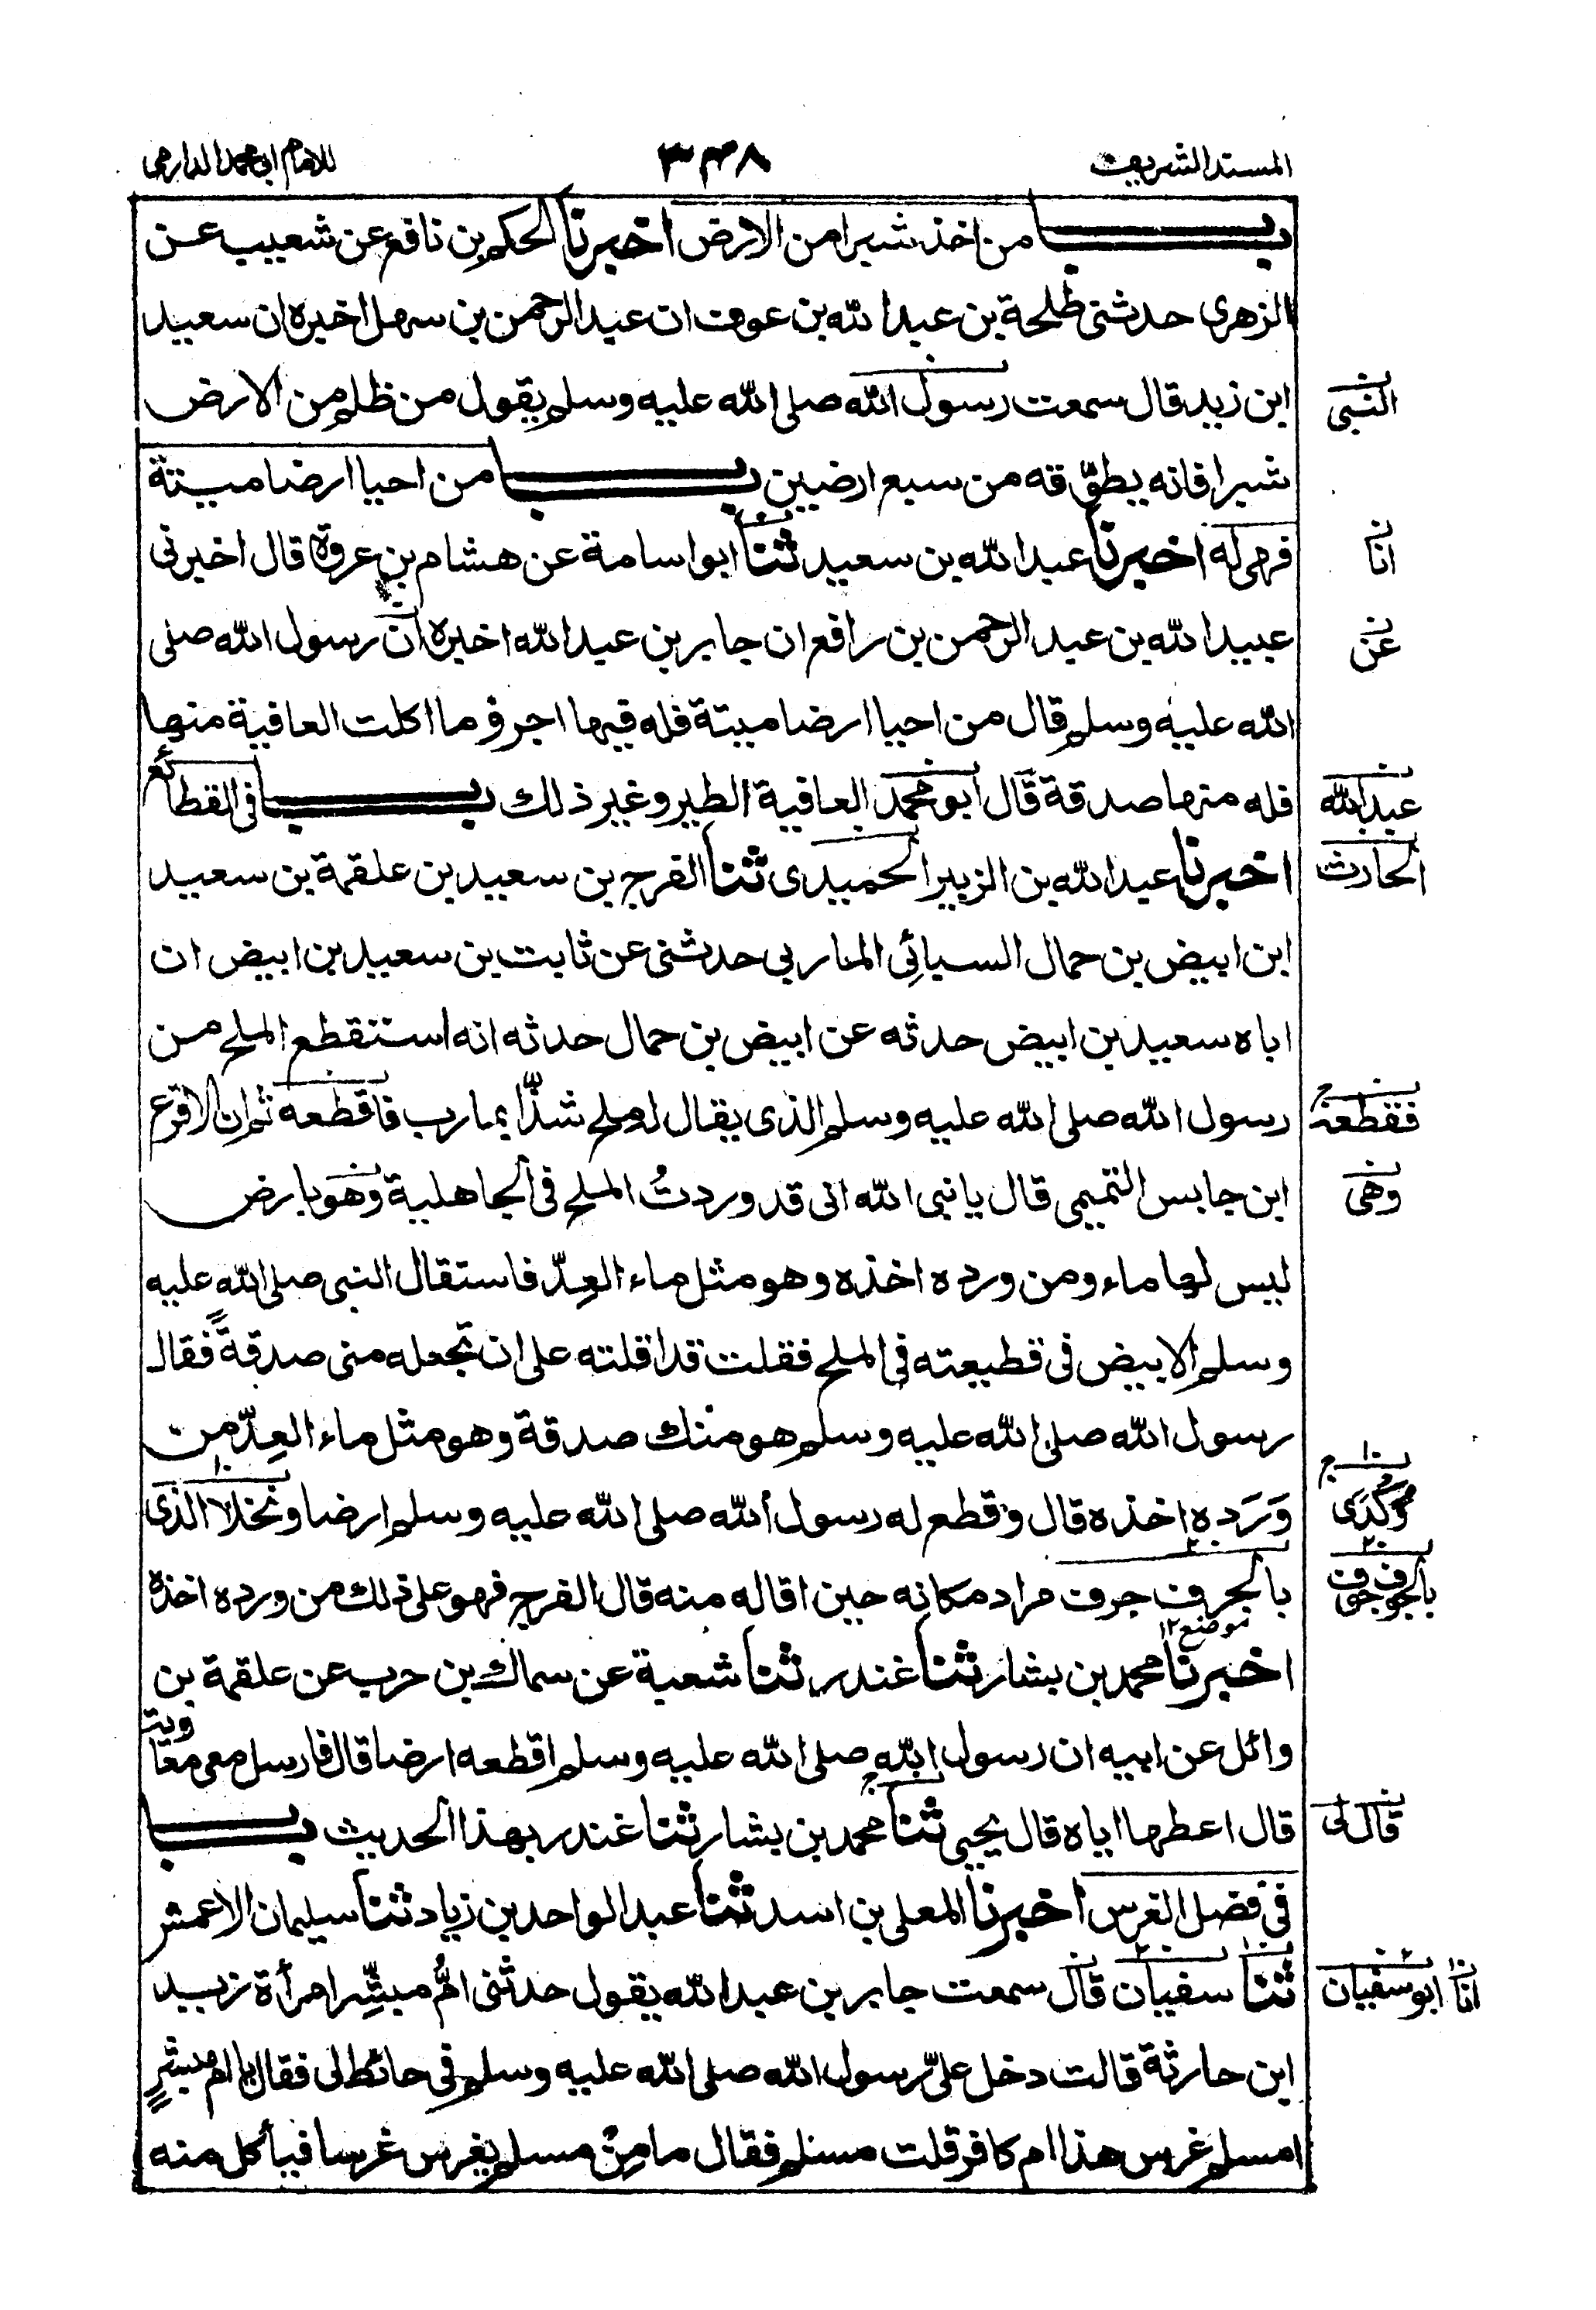 المسند الشريف ٣٤٨ للامام ابى محمد الدارمى
باب من اخذ شبرا من الارض اخبرنا الحكم بن نافع عن شعيب عن
الزهرى حدثنى طلحة بن عبد الله بن عوف ان عبد الرحمن بن سهل اخبره ان سعيد
ابن زيد قال سمعت رسول الله صلى الله عليه وسلم يقول من ظلم من الارض
النبى
شبرا فانه يطوّقه من سبع ارضين باب من احيا ارضا ميتة
فهى له اخبرنا عبد الله بن سعيد ثنا ابو اسامة عن هشام بن عروة قال اخبرنى
انا
عبيد الله بن عبد الرحمن بن رافع ان جابر بن عبد الله اخبره ان رسول الله صلى
عن
الله عليه وسلم قال من احيا ارضا ميتة فله فيها اجر وما اكلت العافية منها
فله منها صدقة قال ابو محمد العافية الطير وغير ذلك باب فى القطائع
عبد الله
اخبرنا عبد الله بن الزبير الحميدى ثنا الفرج بن سعيد بن علقمة بن سعيد
الحارث
ابن ابيض بن حمال السبائى الماربى حدثنى عن ثابت بن سعيد بن ابيض ان
اباه سعيد بن ابيض حدثه عن ابيض بن حمال حدثه انه استقطع الملح من
رسول الله صلى الله عليه وسلم الذى يقال له ملح شذّا بمارب فاقطعه ثم ان الاقرع
فقطعه
ابن حابس التميمى قال يا نبى الله انى قد وردتُ الملح فى الجاهلية وهو بارض
وهى
ليس لها ماء ومن ورده اخذه وهو مثل ماء العِدّ فاستقال النبى صلى الله عليه
وسلم الابيض فى قطيعته فى الملح فقلت قد اقلته على ان تجعله منى صدقةً فقال
رسول الله صلى الله عليه وسلم هو منك صدقة وهو مثل ماء العِدّ من
وَرَده اخذه قال وقطع له رسول الله صلى الله عليه وسلم ارضا ونخلا الذى
بالجرف جرف مراد مكانه حين اقاله منه قال الفرج فهو على ذلك من ورده اخذه
موضع ١٢
اخبرنا محمد بن بشار ثنا غندر ثنا شعبة عن سماك بن حرب عن علقمة بن
وائل عن ابيه ان رسول الله صلى الله عليه وسلم اقطعه ارضا قال فارسل معى معاوية
قال اعطها اياه قال يحيى ثنا محمد بن بشار ثنا غندر بهذا الحديث باب
قال لى
فى فضل الغرس اخبرنا المعلى بن اسد ثنا عبد الواحد بن زياد ثنا سليمان الاعمش
ثنا سفيان قال سمعت جابر بن عبد الله يقول حدثنى امُّ مبشّر امرأة زيد
انا ابو سفيان
ابن حارثة قالت دخل علىّ رسول الله صلى الله عليه وسلم فى حائط لى فقال يا ام مبشرٍ
امسلم غرس هذا ام كافر قلت مسلم فقال ما مِنْ مسلم يغرس غرسا فيأكل منه